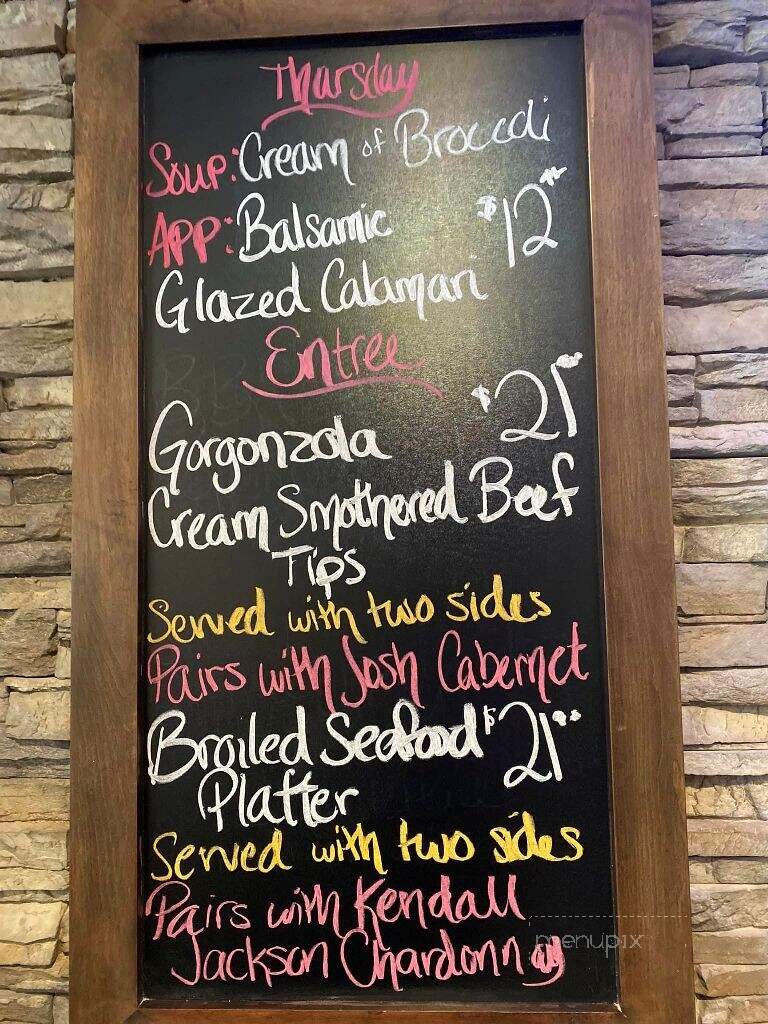 Thursday
Soup: Cream of Broccoli
App: Balsamic $12
Glazed Calamari
Entree
Gorgonzola $21
Cream Smothered Beef
Tips
Served with two sides
Pairs with Josh Cabernet
Broiled Seafood $21
Platter
Served with two sides
Pairs with Kendall
Jackson Chardonnay
menupix